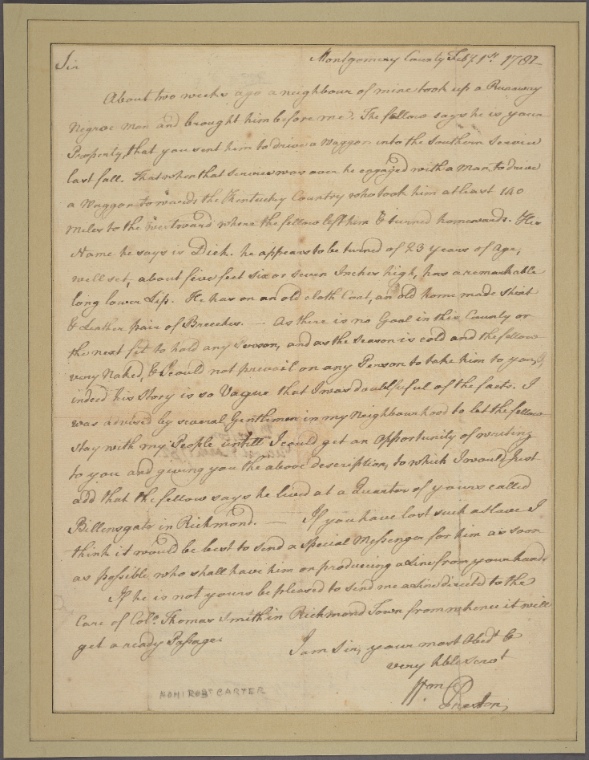 Sir
Montgomery County Feby 1st 1781
About two weeks ago a neighbour of mine took up a Runaway
Negroe Man and brought him before me. The fellow says he is your
Property, that you sent him to drive a Waggon into the Southern Service
last fall. That when that Service was over he engaged with a Man to drive
a Waggon towards the Kentucky Country who took him at least 140
Miles to the Westward where the fellow left him & turned homewards. His
Name he says is Dick. he appears to be turned of 23 years of Age,
well set, about five feet six or seven Inches high, has a remarkable
long lower Lip. He has on an old cloth Coat, an old home made Shirt
& Leather pair of Breeches. — As there is no Goal in this County or
the next fit to hold any Person, and as the Season is cold and the fellow
very Naked, & I could not prevail on any Person to take him to you,
indeed his Story is so Vague that I was doubtful of the facts. I
was advised by several Gentlemen in my Neighbourhood to let the fellow
stay with my People untill I could get an Opportunity of writing
to you and giving you the above description, to which I would just
add that the fellow says he lived at a Quarter of yours called
Billensgate in Richmond. — If you have lost such a slave I
think it would be best to send a special Messenger for him as soon
as possible who shall have him on producing a Line from your hands
If he is not yours be pleased to send me a Line directed to the
Care of Colo. Thomas Smith in Richmond Town from whence it will
get a ready Passage.
I am Sir, your most Obedt. &
very hble Servt
Wm Preston
HON: ROBT CARTER